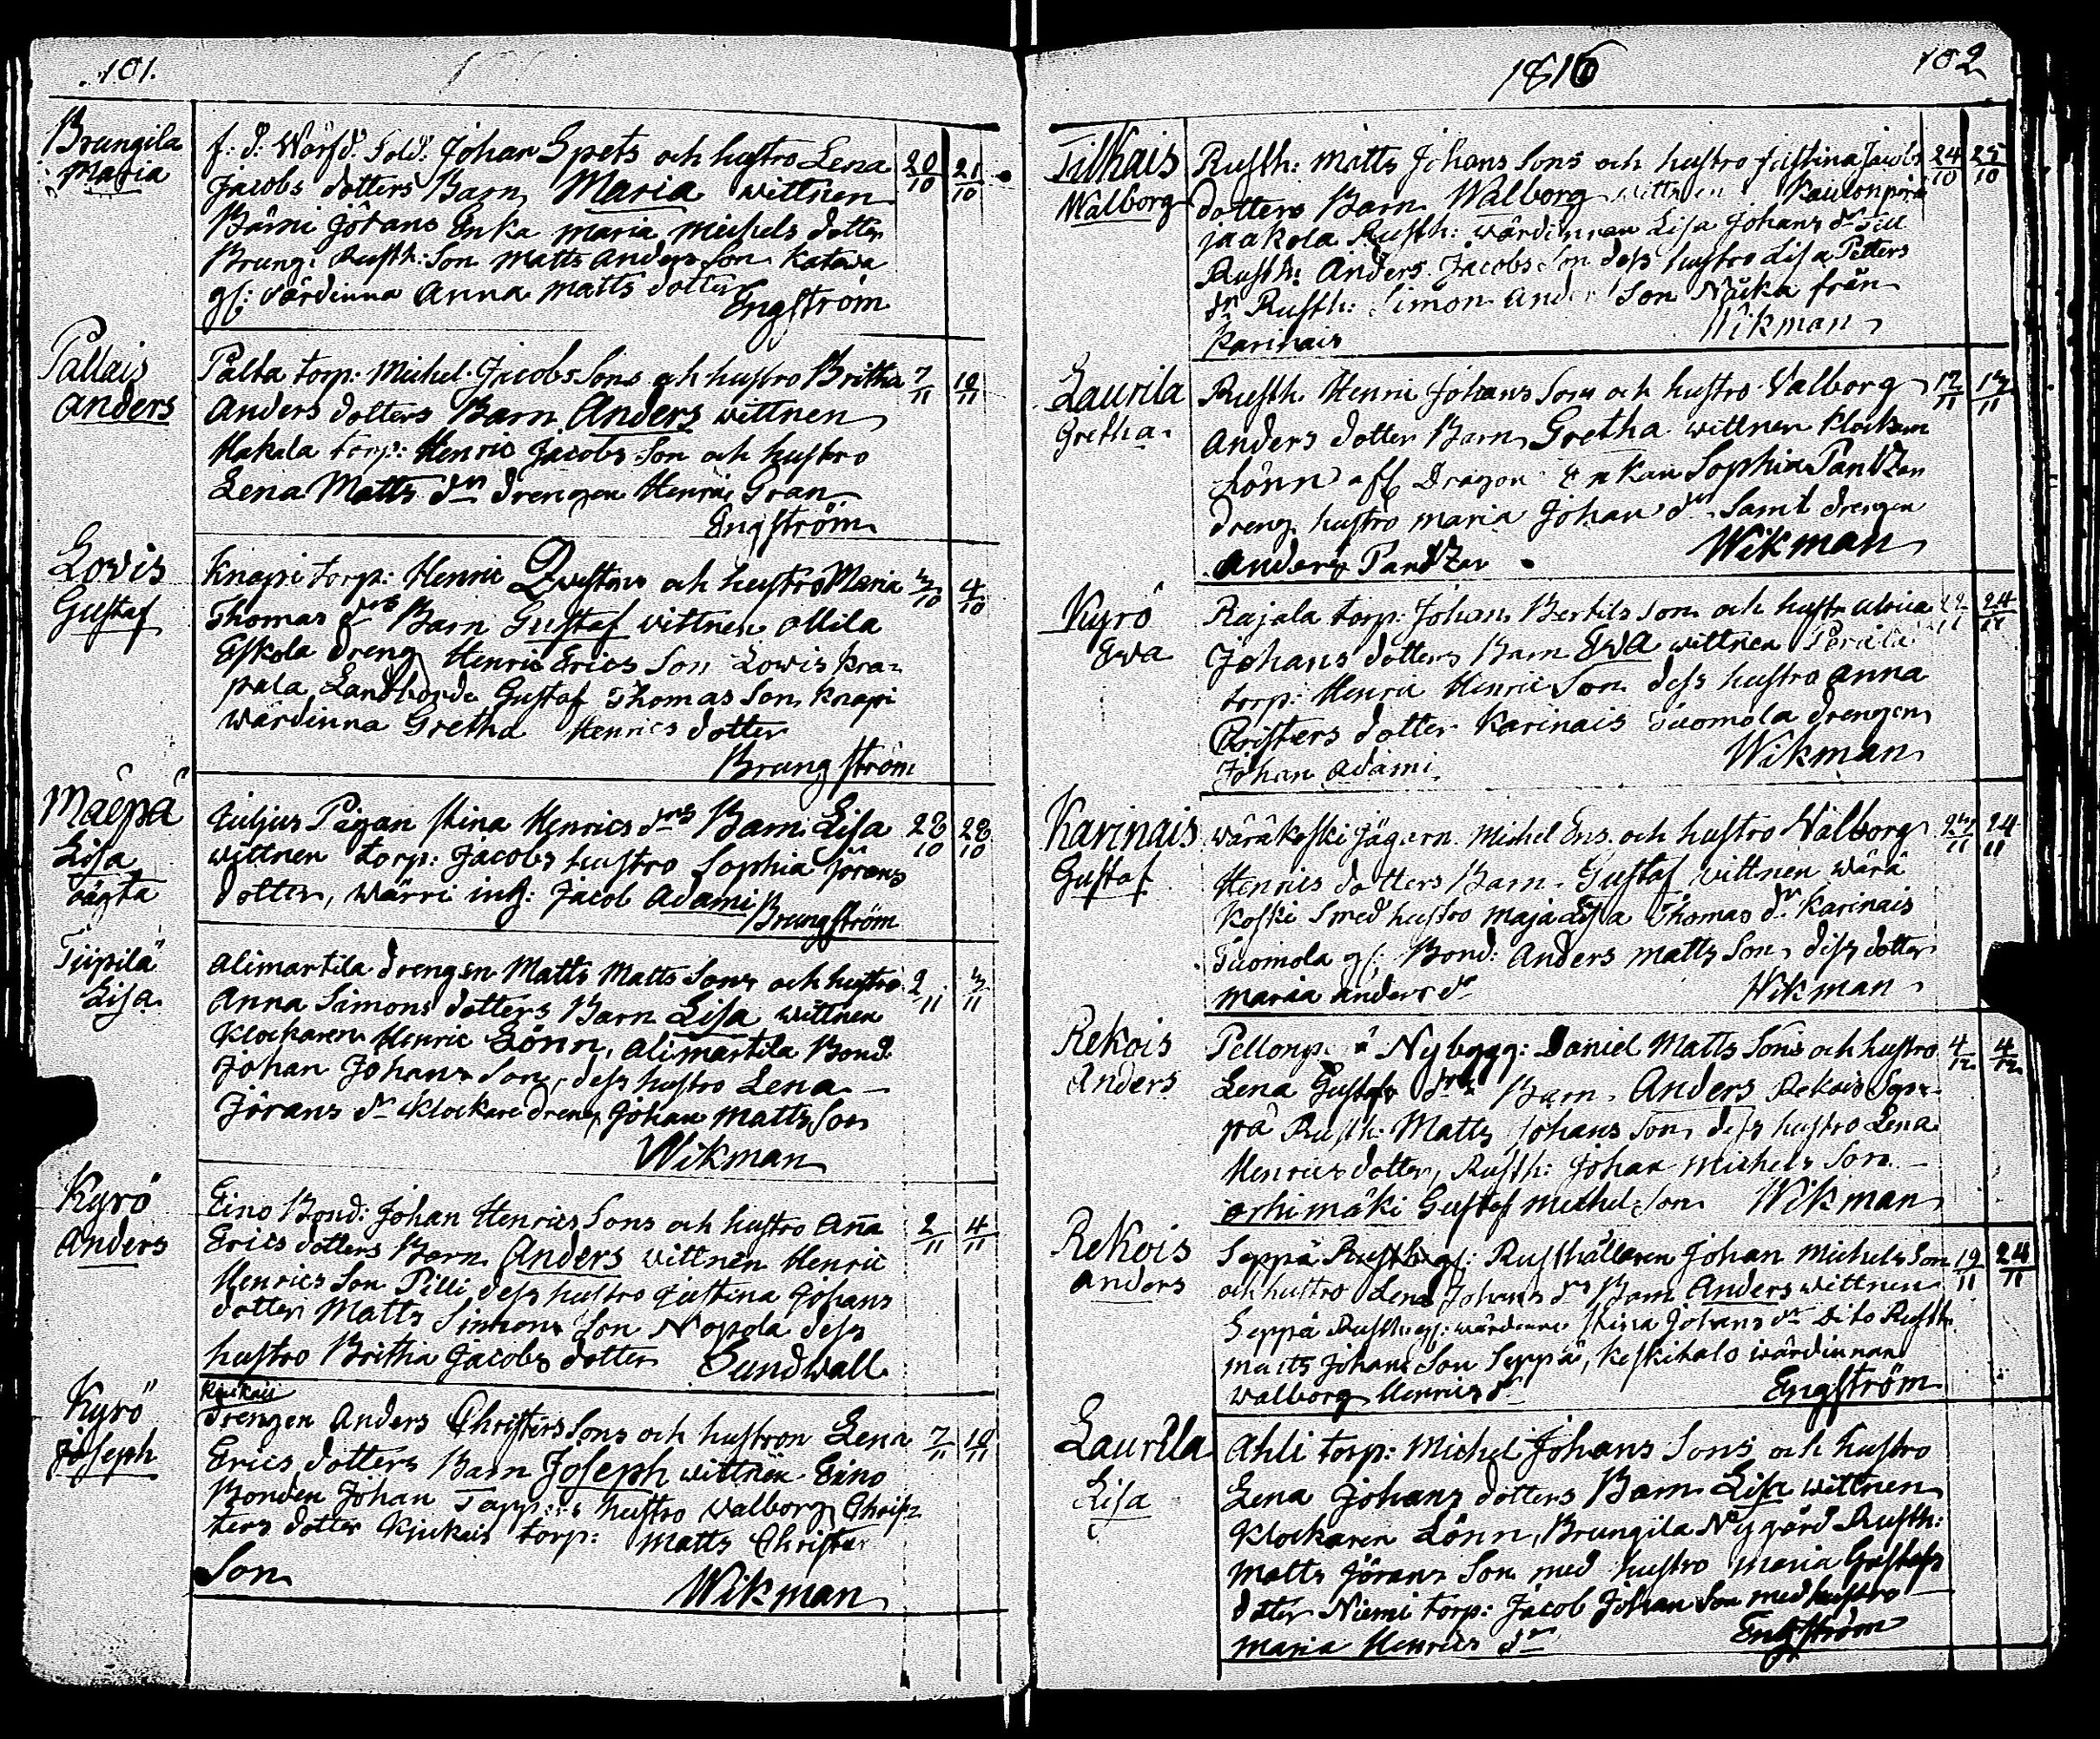 101.
Brungila
Maria
f: d: Wärfd. Sold: Johan Spets och hustro Lena 20/10 21/10
Jacobs dotters Barn Maria wittnen
Bärni Jörans Enka Maria Michels dotter
Brung: Rusth: Son Matts Anders Son Katawa
gl: värdinna Anna Matts dotter
Engström
Pallais
Anders
Palta torp: Michel Jacobs Sons och hustro Britha 7/11 10/11
Anders dotters Barn Anders wittnen
Hakala torp: Henric Jacobs Son och hustro
Lena Matts dr drengen Henric Gran
Engström
Lowis
Gustaf
Knapi torp: Henric Qvistens och hustro Maria 3/10 4/10
Thomas drs Barn Gustaf vittnen Ollila
Eskola dreng Henric Erics Son Lowis Kra-
pala Landbonde Gustaf Thomas Son Knapi
wärdinna Gretha Henrics dotter
Brungström
Mäenpä
Lisa
oägta
Pigan Stina Henrics drs Barn Lisa 28/10 28/10
wittnen torp: Jacobs hustro Sophia Jörans
dotter, Wärri inh: Jacob Adami
Brungström
Tiipilä
Lisa
Alimartila drengen Matts Matts Sons och hustro 2/11 3/11
Anna Simons dotters Barn Lisa wittnen
Klockaren Henric Lönn, Alimartila Bond.
Johan Johans Son, dess hustro Lena
Jörans dr Klockare dreng Johan Matts Son
Wikman
Kyrö
Anders
Eino Bond: Johan Henrics Sons och hustro Anna 2/11 4/11
Erics dotters Barn Anders vittnen Henric
Henrics Son Pilli dess hustro Justina Johans
dotter Matts Simons Son Nopola dess
hustro Britha Jacobs dotter Sundwall
Kyrö
Joseph
Kiukais
drengen Anders Christers Sons och hustron Lena 7/11 10/11
Erics dotters Barn Joseph wittnen Eino
Bonden Johan hustro Valborg Chris-
ters dotter Kiukais torp: Matts Christer
Son
Wikman
1816 102
Tilkais
Walborg
Rusth: Matts Johans Sons och hustro Justina Jacobs 24/10 25/10
dotters Barn Walborg wittnen
Jaakola Rusth: wärdinnan Lisa Johans dr
Rusth: Anders Jacobs Son dess hustro Lisa Petters
dr Rusth: Simon Anders Son från
Karinais
Wikman
Laurila
Gretha
Rusth. Henric Johans Sons och hustro Valborg 12/11 13/11
Anders dotters Barn Gretha wittnen Klockaren
Lönn afl Dragon Enkan Sophia Pantzar
dreng. hustro Maria Johans dr Samt drengen
Anders Pantzar
Wikman
Kyrö
Ewa
Rajala torp: Johan Bertils Sons och hustro Ulrica 22/11 24/11
Johans dotters Barn Ewa wittnen Perälä
torp: Henric Henrics Son dess hustro Anna
Christers dotter Karinais Tuomola drengen
Johan Adami
Wikman
Karinais
Gustaf
Wäräkoski Jägarn. Michel Ens och hustro Walborg 23/11 24/11
Henrics dotters Barn Gustaf vittnen Wärä
koski Smed hustro Maja Lisa Thomas dr Karinais
Tuomola gl: Bond: Anders Matts Son, dess dotter
Maria Anders dr
Wikman
Rekois
Anders
Nybygg: Daniel Matts Sons och hustro 4/12 4/12
Lena Gustafs drs Barn Anders Rekois Sep-
pä Rusth: Matts Johans Son, dess hustro Lena
Henrics dotter, Rusth: Johan Michels Son
Orhimäki Gustaf Michel Son Wikman
Rekois
Anders
Seppä Rusth: gl: Rusthållaren Johan Michels Son 19/11 24/11
och hustro Lena Johans drs Barn Anders wittnen
Seppä Rusth: gl: wärdinna Stina Johans dr Dito Rusth.
Matts Johans Son Seppä, Keskitalo wärdinnan
Walborg Henrics dr
Engström
Laurila
Lisa
Ahli torp: Michel Johans Sons och hustro
Lena Johans dotters Barn Lisa wittnen
Klockaren Lönn, Brungila Nygård Rusth:
Matts Jörans Son med hustro Maria Gustafs
dotter Niemi torp: Jacob Johan Son med hustro
Maria Henrics dr
Engström